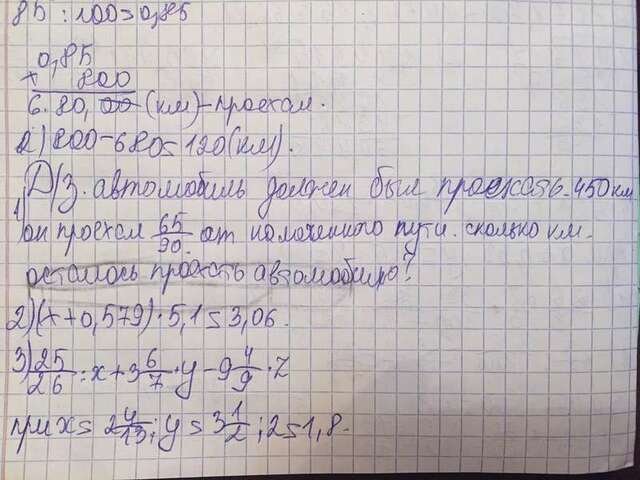 85 : 100 = 0,85
0,85
× 800
680,00 (км) - проехал.
2) 800 - 680 = 120 (км).
Д/з. автомобиль должен был проехать 450 км
1) он проехал 65/90 от положенного пути. сколько км.
осталось проехать автомобилю?
2) (x + 0,579) · 5,1 = 3,06.
3) 25/26 : x + 3 6/7 · y - 9 4/9 · z
при x = 2 4/13; y = 3 1/2; z = 1,8.